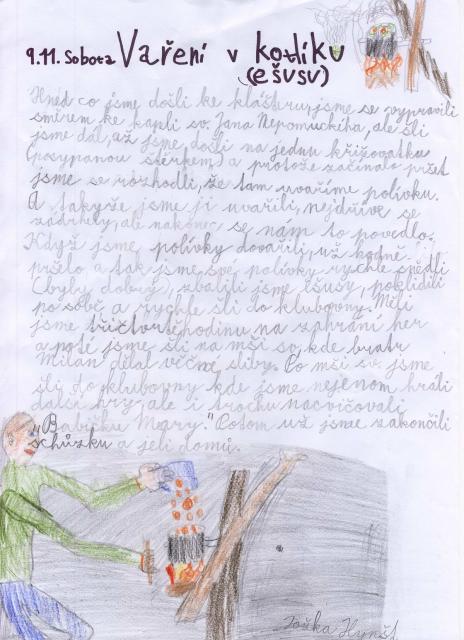 9.11. Sobota Vaření v kotlíku
(ešusu)
Hned co jsme došli ke klášteru, jsme se vypravili
směrem ke kapli sv. Jana Nepomuckého, ale šli
jsme dál, až jsme došli na jednu křižovatku
(posypanou štěrkem) a protože začínalo pršet
jsme se rozhodli, že tam uvaříme polívku.
A takyže jsme ji uvařili, nejdříve se
zadrhely, ale nakonec se nám to povedlo.
Když jsme polívky dovařili, už hodně
pršelo a tak jsme své polívky rychle snědli
(byly dobrý), zbalili jsme ešusy, poklidili
po sobě a rychle šli do klubovny. Měli
jsme tři čtvrtě hodinu na zahrání her
a poté jsme šli na mši sv. kde bratr
Milan dělal věčné sliby. Po mši sv. jsme
šli do klubovny kde jsme nejenom hráli
další hry, ale i trochu nacvičovali
„Babičku Mary." Potom už jsme zakončili
schůzku a jeli domů.
Joška Hynšt